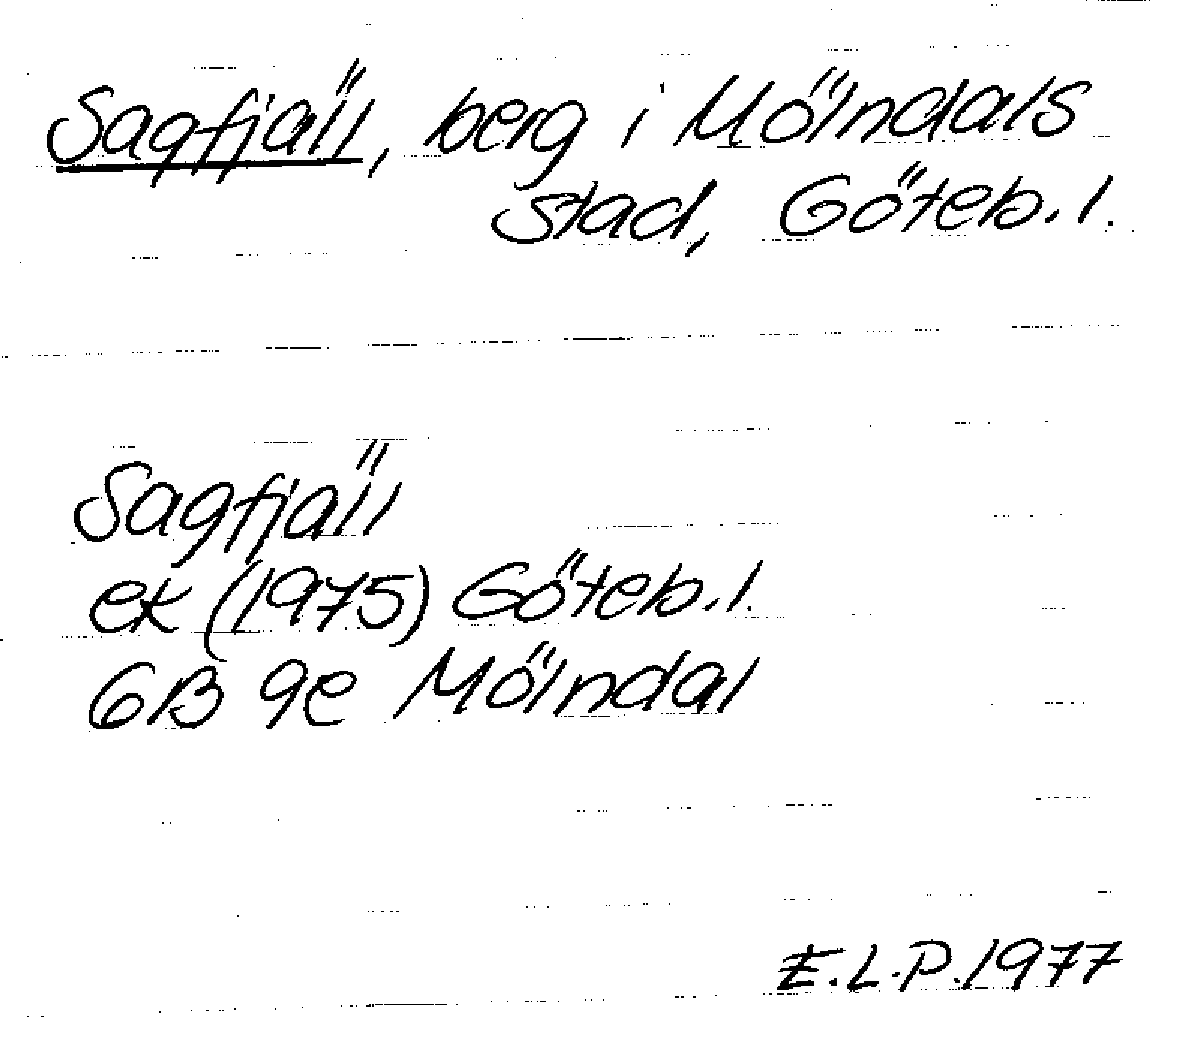 Sagfjäll, berg i Mölndals
stad, Göteb. l.
Sagfjäll
ek (1975) Göteb. l.
6B 9e Mölndal
E.L.P. 1977